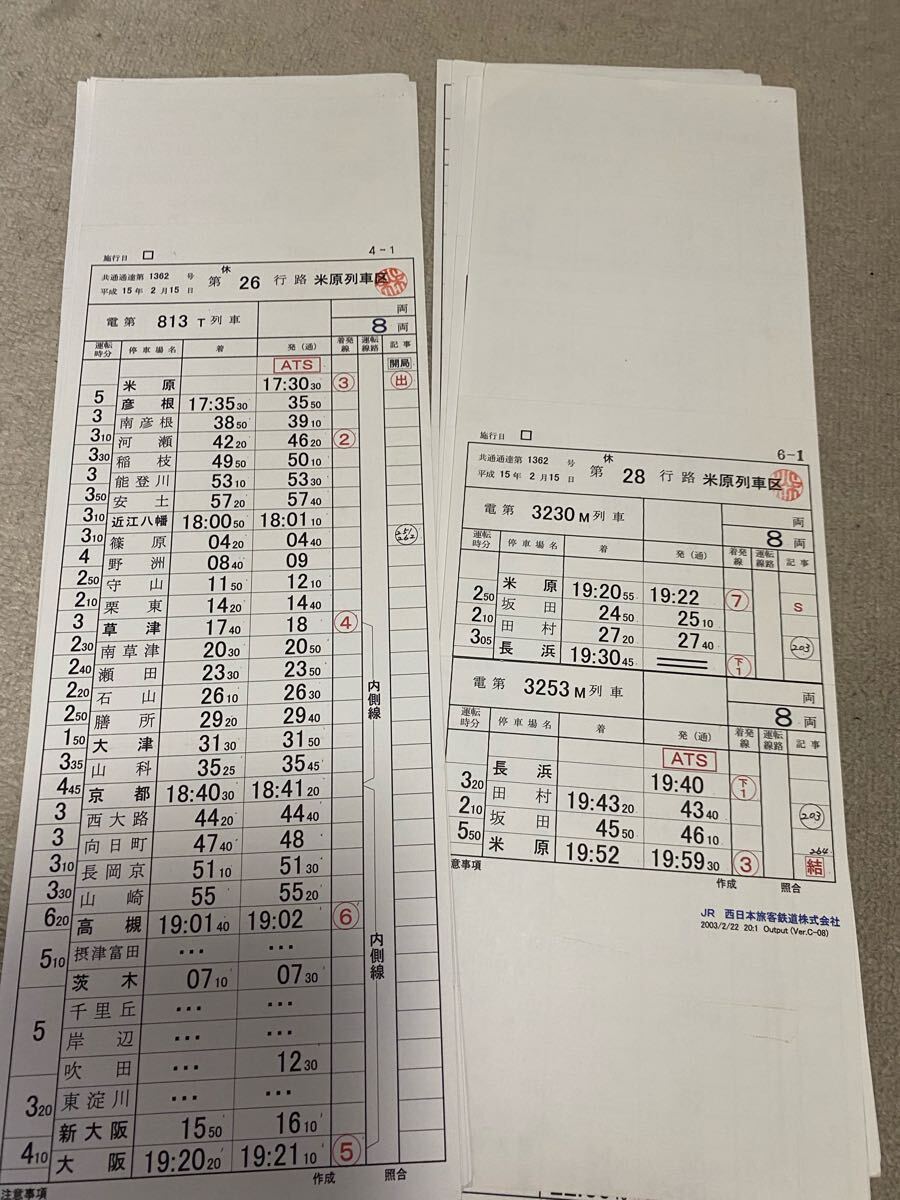 施行日 □ 4-1
共通通達第 1362 号
平成 15 年 2 月 15 日
休
第 26 行路 米原列車区
電第 813 T 列車
両
8 両
運転時分 停車場名 着 発(通) 着発線 運転線路 記事
ATS 開局
米原 17:30 30 ③ 出
5
彦根 17:35 30 35 50
3
南彦根 38 50 39 10
3 10
河瀬 42 20 46 20 ②
3 30
稲枝 49 50 50 10
3
能登川 53 10 53 30
3 50
安土 57 20 57 40
3 10
近江八幡 18:00 50 18:01 10
3 10
篠原 04 20 04 40
4
野洲 08 40 09
2 50
守山 11 50 12 10
2 10
栗東 14 20 14 40
3
草津 17 40 18 ④
2 30
南草津 20 30 20 50
2 40
瀬田 23 30 23 50
2 20
石山 26 10 26 30
内側線
2 50
膳所 29 20 29 40
1 50
大津 31 30 31 50
3 35
山科 35 25 35 45
4 45
京都 18:40 30 18:41 20
3
西大路 44 20 44 40
3
向日町 47 40 48
3 10
長岡京 51 10 51 30
3 30
山崎 55 55 20
6 20
高槻 19:01 40 19:02 ⑥
摂津富田 … …
5 10
茨木 07 10 07 30
内側線
千里丘 … …
5
岸辺 … …
吹田 … 12 30
東淀川 … …
3 20
新大阪 15 50 16 10
4 10
大阪 19:20 20 19:21 10 ⑤
注意事項 作成 照合
施行日 □ 6-1
共通通達第 1362 号
平成 15 年 2 月 15 日
休
第 28 行路 米原列車区
電第 3230 M 列車
両
8 両
運転時分 停車場名 着 発(通) 着発線 運転線路 記事
米原 19:20 55 19:22 ⑦ S
2 50
坂田 24 50 25 10
2 10
田村 27 20 27 40 203
3 05
長浜 19:30 45 下1
電第 3253 M 列車
両
8 両
運転時分 停車場名 着 発(通) 着発線 運転線路 記事
ATS
長浜 19:40 下1
3 20
田村 19:43 20 43 40 203
2 10
坂田 45 50 46 10
5 50
米原 19:52 19:59 30 ③ 264 結
意事項 作成 照合
JR 西日本旅客鉄道株式会社
2003/2/22 20:1 Output (Ver.C-08)